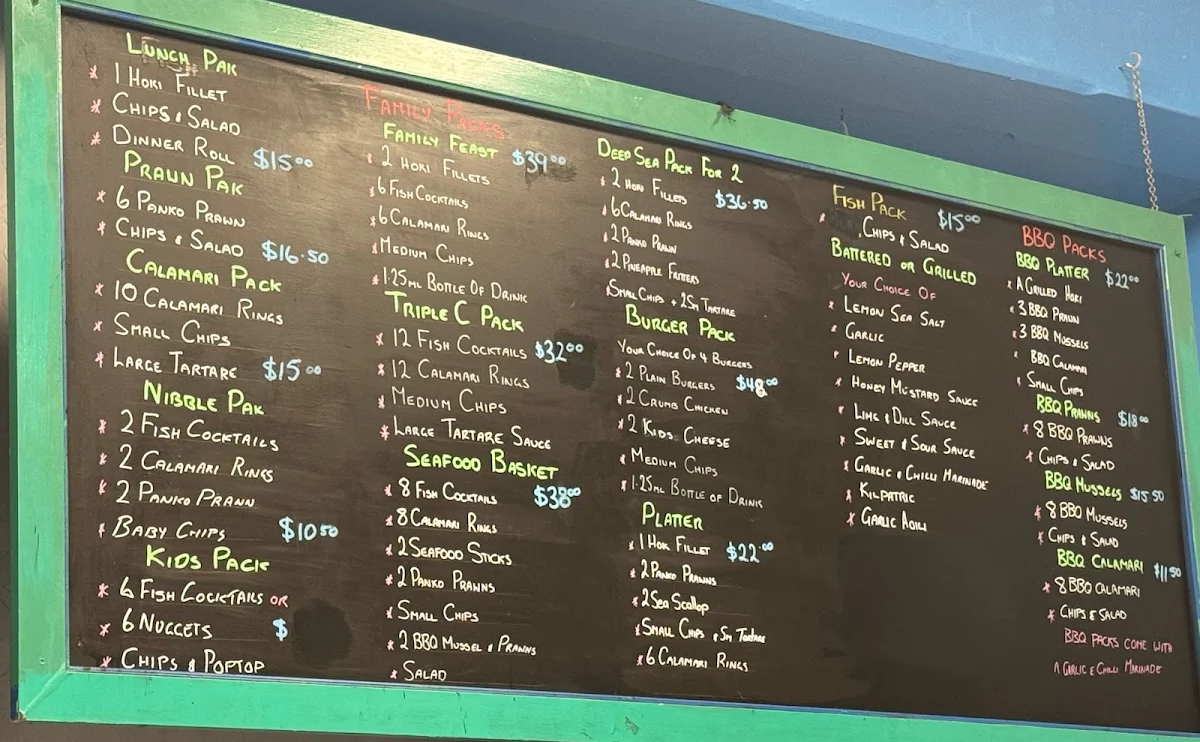 LUNCH PAK
* 1 HOKI FILLET
* CHIPS & SALAD
* DINNER ROLL $15.00
PRAUN PAK
* 6 PANKO PRAWN
* CHIPS & SALAD $16.50
CALAMARI PACK
* 10 CALAMARI RINGS
* SMALL CHIPS
* LARGE TARTARE $15.00
NIBBLE PAK
* 2 FISH COCKTAILS
* 2 CALAMARI RINGS
* 2 PANKO PRANN
* BABY CHIPS $10.50
KIDS PACK
* 6 FISH COCKTAILS OR
* 6 NUGGETS $
* CHIPS & POPTOP
FAMILY PACKS
FAMILY FEAST $39.00
* 2 HOKI FILLETS
* 6 FISH COCKTAILS
* 6 CALAMARI RINGS
* MEDIUM CHIPS
* 1.25ML BOTTLE OF DRINK
TRIPLE C PACK
* 12 FISH COCKTAILS $32.00
* 12 CALAMARI RINGS
* MEDIUM CHIPS
* LARGE TARTARE SAUCE
SEAFOOD BASKET
* 8 FISH COCKTAILS $38.00
* 8 CALAMARI RINGS
* 2 SEAFOOD STICKS
* 2 PANKO PRAWNS
* SMALL CHIPS
* 2 BBQ MUSSEL & PRAWNS
* SALAD
DEEP SEA PACK FOR 2
* 2 HOKI FILLETS $36.50
* 6 CALAMARI RINGS
* 2 PANKO PRAWN
* 2 PINEAPLE FRITTERS
* SMALL CHIPS + 2 SM TARTARE
BURGER PACK
YOUR CHOICE OF 4 BURGERS
* 2 PLAIN BURGERS $48.00
* 2 CRUMB CHICKEN
* 2 KIDS CHEESE
* MEDIUM CHIPS
* 1.25ML BOTTLE OF DRINK
PLATTER
* 1 HOKI FILLET $22.00
* 2 PANKO PRAWNS
* 2 SEA SCALLOP
* SMALL CHIPS & SM TARTARE
* 6 CALAMARI RINGS
FISH PACK $15.00
* CHIPS & SALAD
BATTERED OR GRILLED
YOUR CHOICE OF
* LEMON SEA SALT
* GARLIC
* LEMON PEPPER
* HONEY MUSTARD SAUCE
* LIME & DILL SAUCE
* SWEET & SOUR SAUCE
* GARLIC & CHILLI MARINADE
* KILPATRIC
* GARLIC AOILI
BBQ PACKS
BBQ PLATTER $22.00
* A GRILLED HOKI
* 3 BBQ PRAUN
* 3 BBQ MUSSELS
* BBQ CALAMARI
* SMALL CHIPS
BBQ PRAWNS $18.00
* 8 BBQ PRAWNS
* CHIPS & SALAD
BBQ MUSSELS $15.50
* 8 BBQ MUSSELS
* CHIPS & SALAD
BBQ CALAMARI $11.50
* 8 BBQ CALAMARI
* CHIPS & SALAD
BBQ PACKS COME WITH
A GARLIC & CHILLI MARINADE